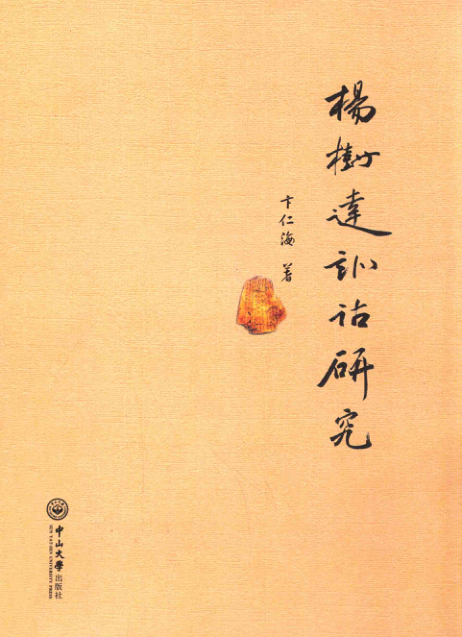 楊樹達訓詁研究
卞仁海 著
中山大學出版社
SUN YAT-SEN UNIVERSITY PRESS